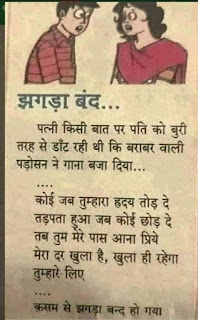 झगड़ा बंद...
पत्नी किसी बात पर पति को बुरी
तरह से डाँट रही थी कि बराबर वाली
पड़ोसन ने गाना बजा दिया...
....
कोई जब तुम्हारा ह्रदय तोड़ दे
तड़पता हुआ जब कोई छोड़ दे
तब तुम मेरे पास आना प्रिये
मेरा दर खुला है, खुला ही रहेगा
तुम्हारे लिए
....
क़सम से झगड़ा बन्द हो गया